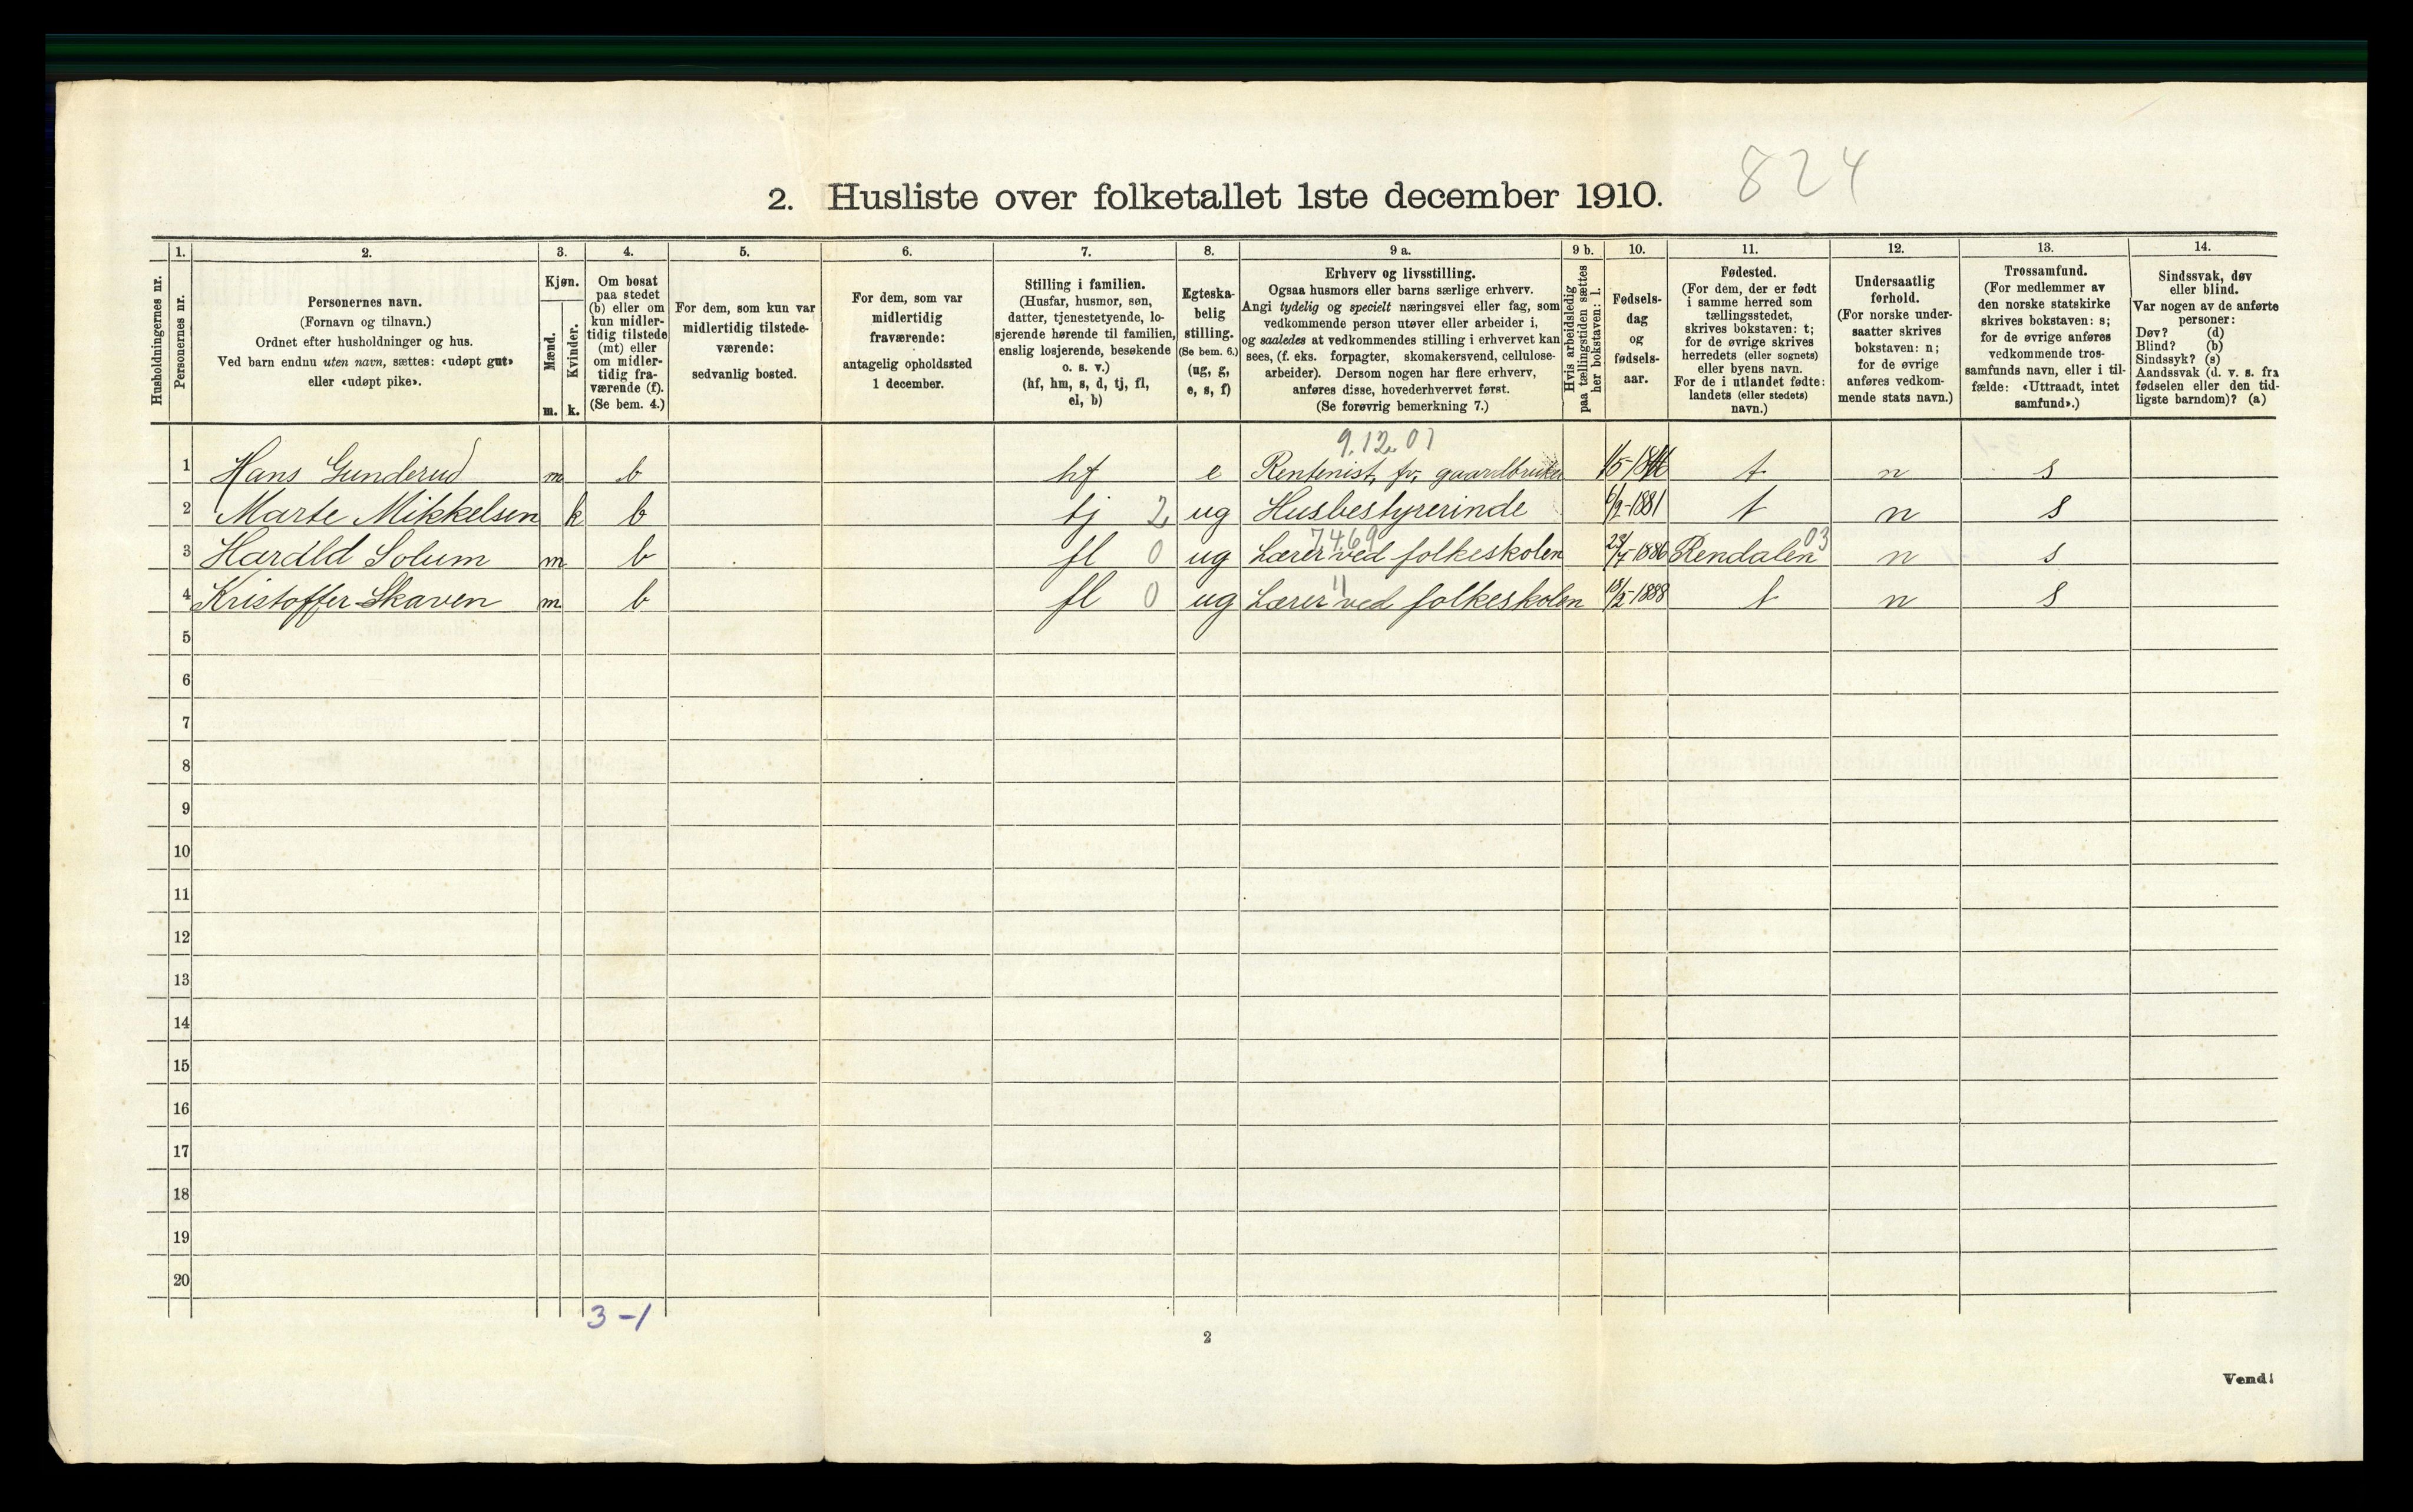 824
2. Husliste over folketallet 1ste december 1910.
Husholdningernes nr.
1.
Personernes nr.
2.
Personernes navn.
(Fornavn og tilnavn.)
Ordnet efter husholdninger og hus.
Ved barn endnu uten navn, sættes: «udøpt gut»
eller «udøpt pike».
3.
Kjøn.
Mænd.
Kvinder.
m. k.
4.
Om bosat
paa stedet
(b) eller om
kun midler-
tidig tilstede
(mt) eller
om midler-
tidig fra-
værende (f).
(Se bem. 4.)
5.
For dem, som kun var
midlertidig tilstede-
værende:
sedvanlig bosted.
6.
For dem, som var
midlertidig
fraværende:
antagelig opholdssted
1 december.
7.
Stilling i familien.
(Husfar, husmor, søn,
datter, tjenestetyende, lo-
sjerende hørende til familien,
enslig losjerende, besøkende
o. s. v.)
(hf, hm, s, d, tj, fl,
el, b)
8.
Egteska-
belig
stilling.
(Se bem. 6.)
(ug, g,
e, s, f)
9 a.
Erhverv og livsstilling.
Ogsaa husmors eller barns særlige erhverv.
Angi tydelig og specielt næringsvei eller fag, som
vedkommende person utøver eller arbeider i,
og saaledes at vedkommendes stilling i erhvervet kan
sees, (f. eks. forpagter, skomakersvend, cellulose-
arbeider). Dersom nogen har flere erhverv,
anføres disse, hovederhvervet først.
(Se forøvrig bemerkning 7.)
9 b.
Hvis arbeidsledig
paa tællingstiden sættes
her bokstaven: l.
10.
Fødsels-
dag
og
fødsels-
aar.
11.
Fødested.
(For dem, der er født
i samme herred som
tællingsstedet,
skrives bokstaven: t;
for de øvrige skrives
herredets (eller sognets)
eller byens navn.
For de i utlandet fødte:
landets (eller stedets)
navn.)
12.
Undersaatlig
forhold.
(For norske under-
saatter skrives
bokstaven: n;
for de øvrige
anføres vedkom-
mende stats navn.)
13.
Trossamfund.
(For medlemmer av
den norske statskirke
skrives bokstaven: s;
for de øvrige anføres
vedkommende tros-
samfunds navn, eller i til-
fælde: «Uttraadt, intet
samfund».)
14.
Sindssvak, døv
eller blind.
Var nogen av de anførte
personer:
Døv? (d)
Blind? (b)
Sindssyk? (s)
Aandssvak (d. v. s. fra
fødselen eller den tid-
ligste barndom)? (a)
9.12.01
1 Hans Gunderud m b hf e Rentenist, fv. gaardbruker t n s
2 Marte Mikkelsen k b tj 2 ug Husbestyrerinde 6/2-1881 t n s
7469 03
3 Harald Solum m b fl 0 ug Lærer ved folkeskolen Rendalen n s
"
4 Kristoffer Skaven m b fl 0 ug Lærer ved folkeskolen t n s
5
6
7
8
9
10
11
12
13
14
15
16
17
18
19
20
3-1
2
Vend!